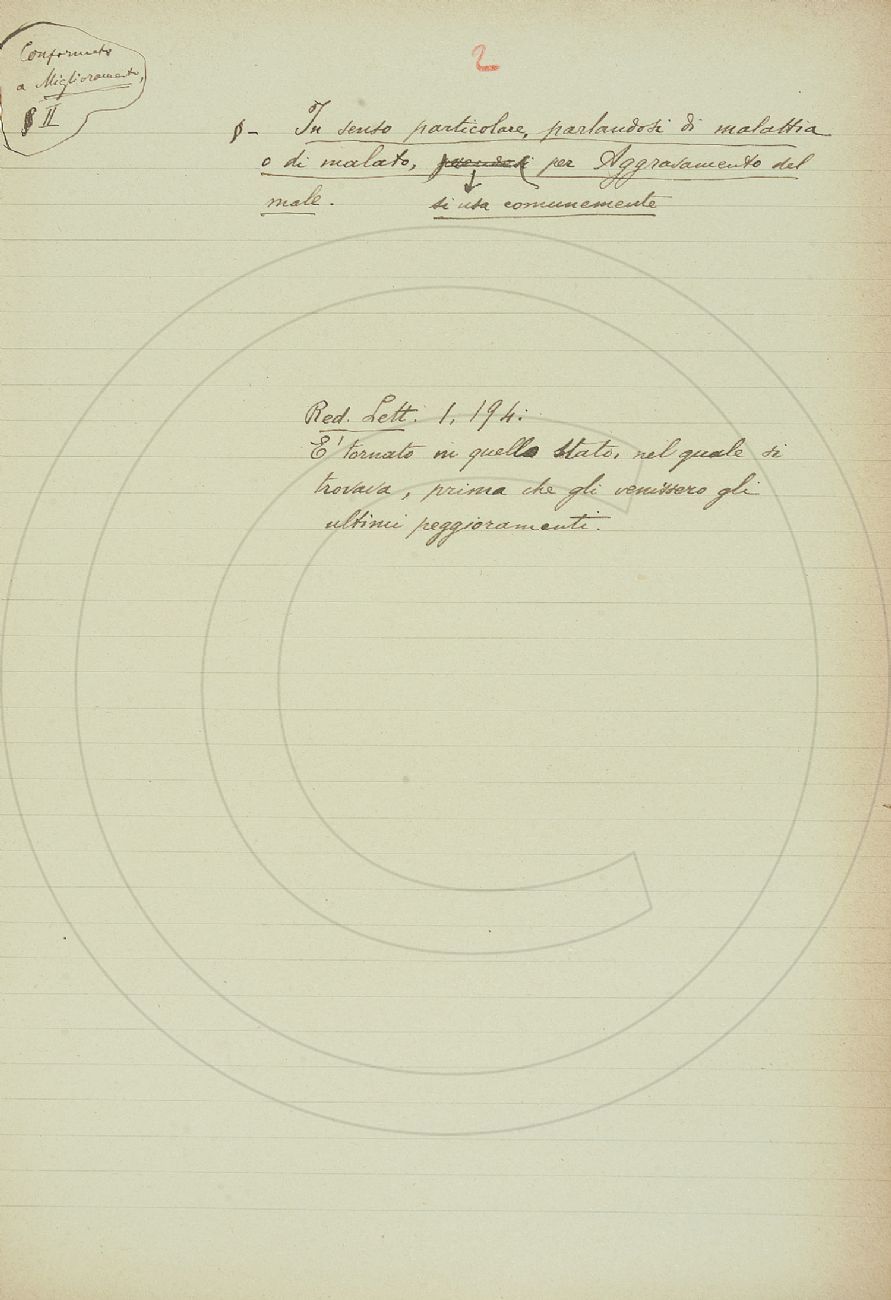 Conformato
a Miglioramento,
§ II
2
§ – In senso particolare, parlandosi di malattia
o di malato, prendesi per Aggravamento del
male.
si usa comunemente
Red. Lett. 1, 194:
E' tornato in quello stato, nel quale si
trovava, prima che gli venissero gli
ultimi peggioramenti.